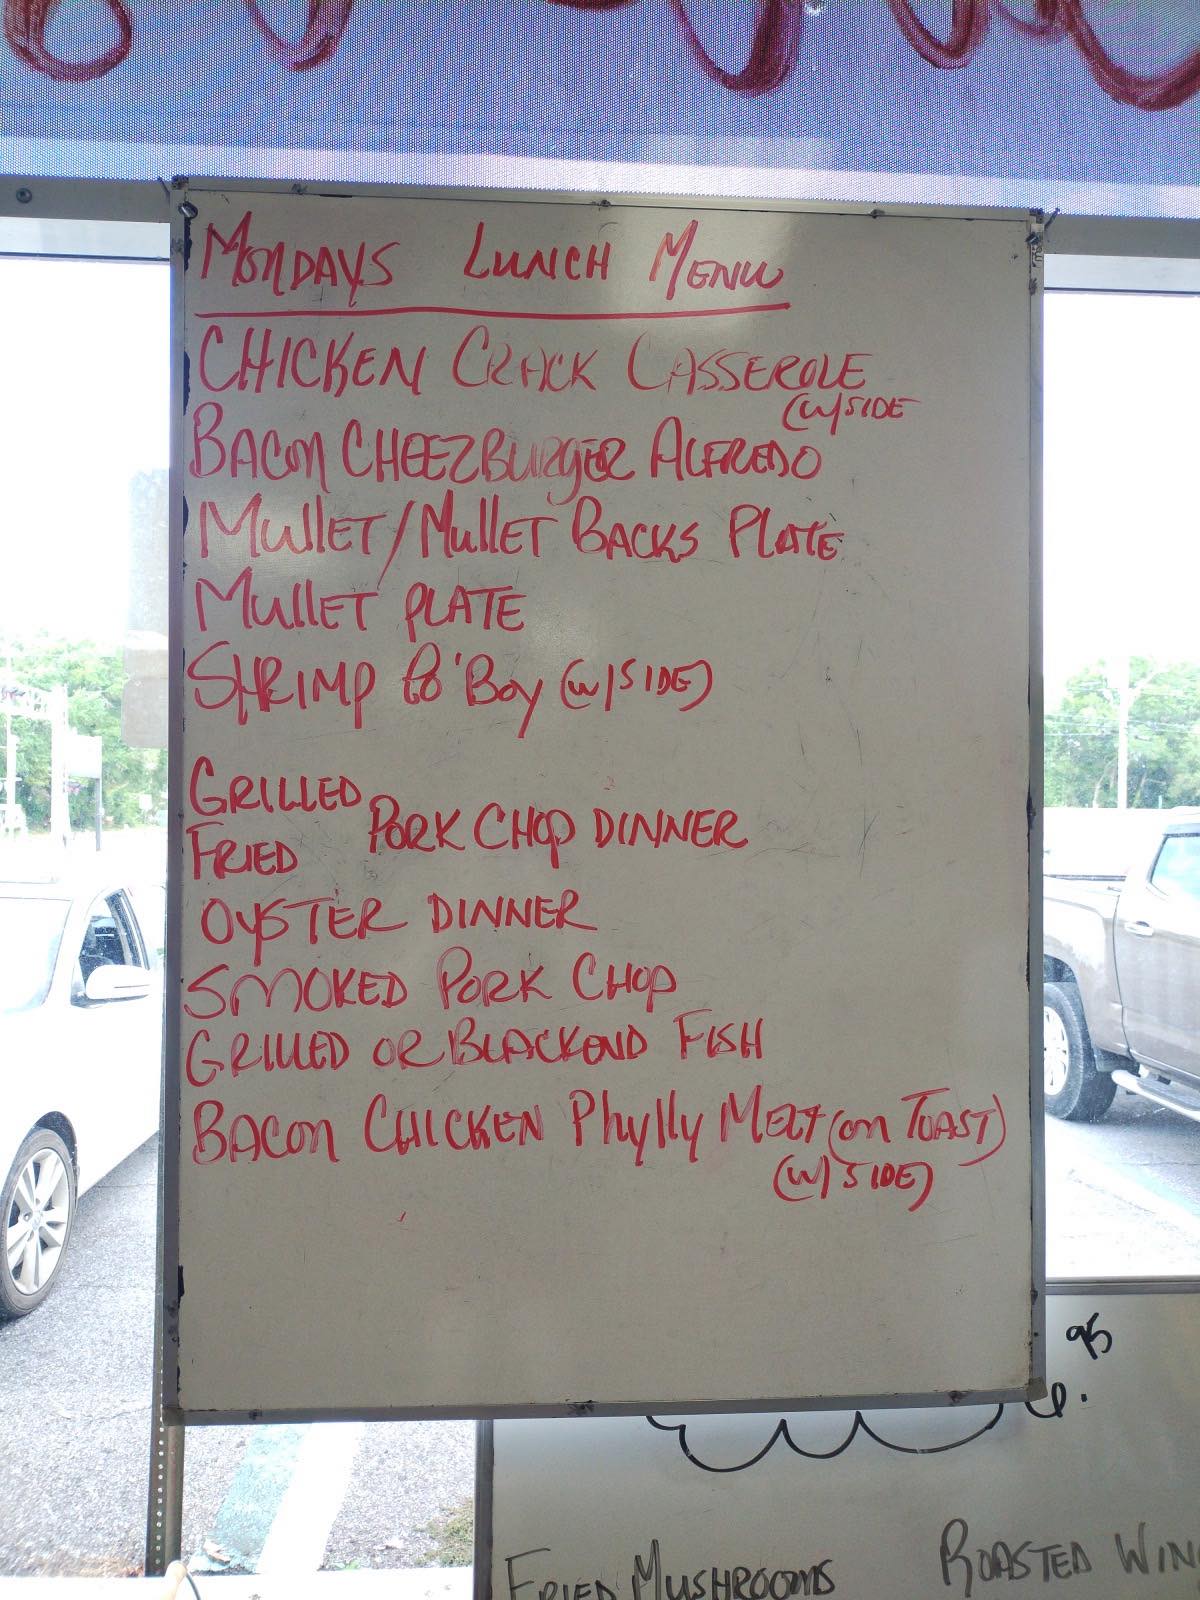 MONDAYS LUNCH MENU
CHICKEN CRACK CASSEROLE
(W/SIDE
BACON CHEEZBURGER ALFREDO
MULLET/MULLET BACKS PLATE
MULLET PLATE
SHRIMP Po'Boy (W/SIDE)
GRILLED
FRIED PORK CHOP DINNER
OYSTER DINNER
SMOKED PORK CHOP
GRILLED OR BLACKEND FISH
BACON CHICKEN Phylly MELT (on TOAST)
(W/SIDE)
95
FRIED MUSHROOMS ROASTED WIN